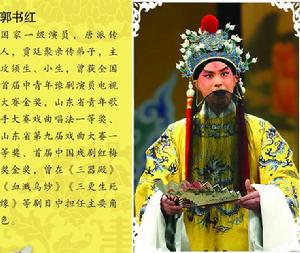 郭书红
国家一级演员，唐派传
人，贾廷聚亲传弟子，主
攻须生、小生，曾获全国
首届中青年徐剧演员电视
大赛金奖，山东省青年歌
手大赛戏曲唱法一等奖、
山东省第九届戏曲大赛一
等奖、首届中国戏剧红梅
奖金奖，曾在《三器殿》
《血溅乌纱》《三更生死
缘》等剧目中担任主要角
色。